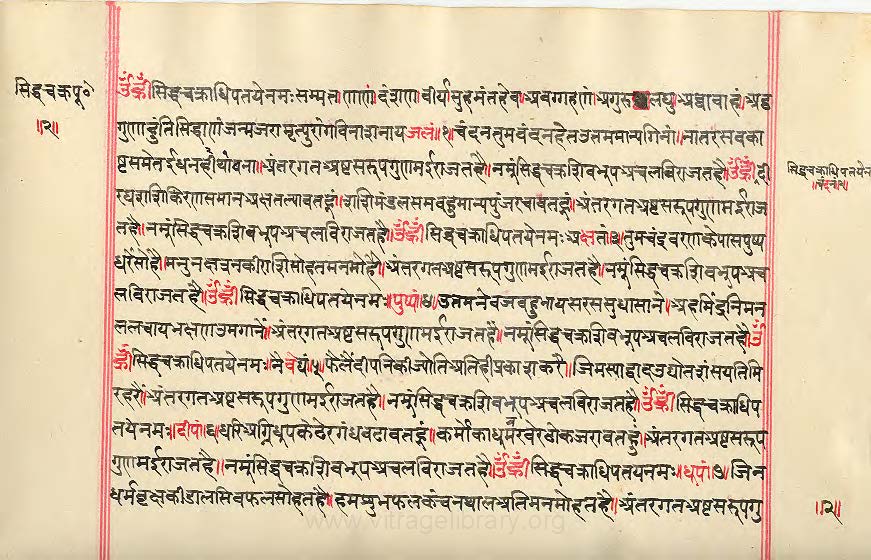 सिद्धचक्रपू॰
॥२॥
ॐह्रीं सिद्धचक्राधिपतये नमः सम्मत्तणाणदंशण वीर्यसुहमंतहेव॥ अवग्गहणं॥ अगुरु लघु॥ अव्वावाहं॥ अट्ठ
गुणा हुंति सिद्धाणं जन्मजरामृत्युरोगविनाशनाय जलं॥१॥ चंदन तुम वंदन हेत उतम मान्य गिना॥ नातर सब का
ष्ट समेत ईधन ही थापना॥ अंतरगत अष्ट सरूप गुणामई राजत है॥ नमूं सिद्धचक्र शिवभूप अचल विराजत है॥ ॐह्रीं॥ दी
रघ शशि किरण समान अक्षत ल्यावत हूं॥ शशिमंडल सम बहु मान्य पुंज रचावत हूं॥ अंतरगत अष्ट सरूप गुणामई राज
त है॥ नमूं सिद्धचक्र शिवभूप अचल विराजत है॥ ॐह्रीं सिद्धचक्राधिपतये नमः अक्षतां॥३॥ तुम चंद्र चरण के पास पुष्प
धरे सो है॥ मनु नक्षत्रन की राशि सोहत मन मोहै॥ अंतरगत अष्ट सरूप गुणामई राजत है॥ नमूं सिद्धचक्र शिवभूप अच
ल विराजत है॥ ॐह्रीं सिद्धचक्राधिपतये नमः॥ पुष्पां॥४॥ उतम नेवज बहु भाय सरस सुधासाने॥ अहमिंद्रनि मन
ललचाय भक्षण उमगाने॥ अंतरगत अष्ट सरूप गुणामई राजत है॥ नमूं सिद्धचक्र शिवभूप अचल विराजत है॥ ॐ
ह्रीं सिद्धचक्राधिपतये नमः॥ नैवेद्यां॥५॥ फैलै दीपनि की ज्योति अति ही प्रकाश करै॥ जिम स्याद्वाद उद्योत शंसय तिमि
र हरै॥ अंतरगत अष्ट सरूप गुणामई राजत है॥ नमूं सिद्धचक्र शिवभूप अचल विराजत है॥ ॐह्रीं सिद्धचक्राधिप
तये नमः॥ दीपां॥६॥ धरि अग्नि धूप के ढेर गंध बढावत हूं॥ कर्मो का धूम्र खेर ठोक जरावत हूं॥ अंतरगत अष्ट सरूप
गुणामई राजत है॥ नमूं सिद्धचक्र शिवभूप अचल विराजत है॥ ॐह्रीं सिद्धचक्राधिपतये नमः॥ धूपां॥७॥ जिन
धर्म वृक्ष की डाल सिव फल सोहत है॥ हम शुभ फल कंचन थाल अति मन मोहत है॥ अंतरगत अष्ट सरूप गु
सिद्धचक्राधिपतये न
॥चंदनं॥२॥
॥२॥
www.vitragelibrary.org